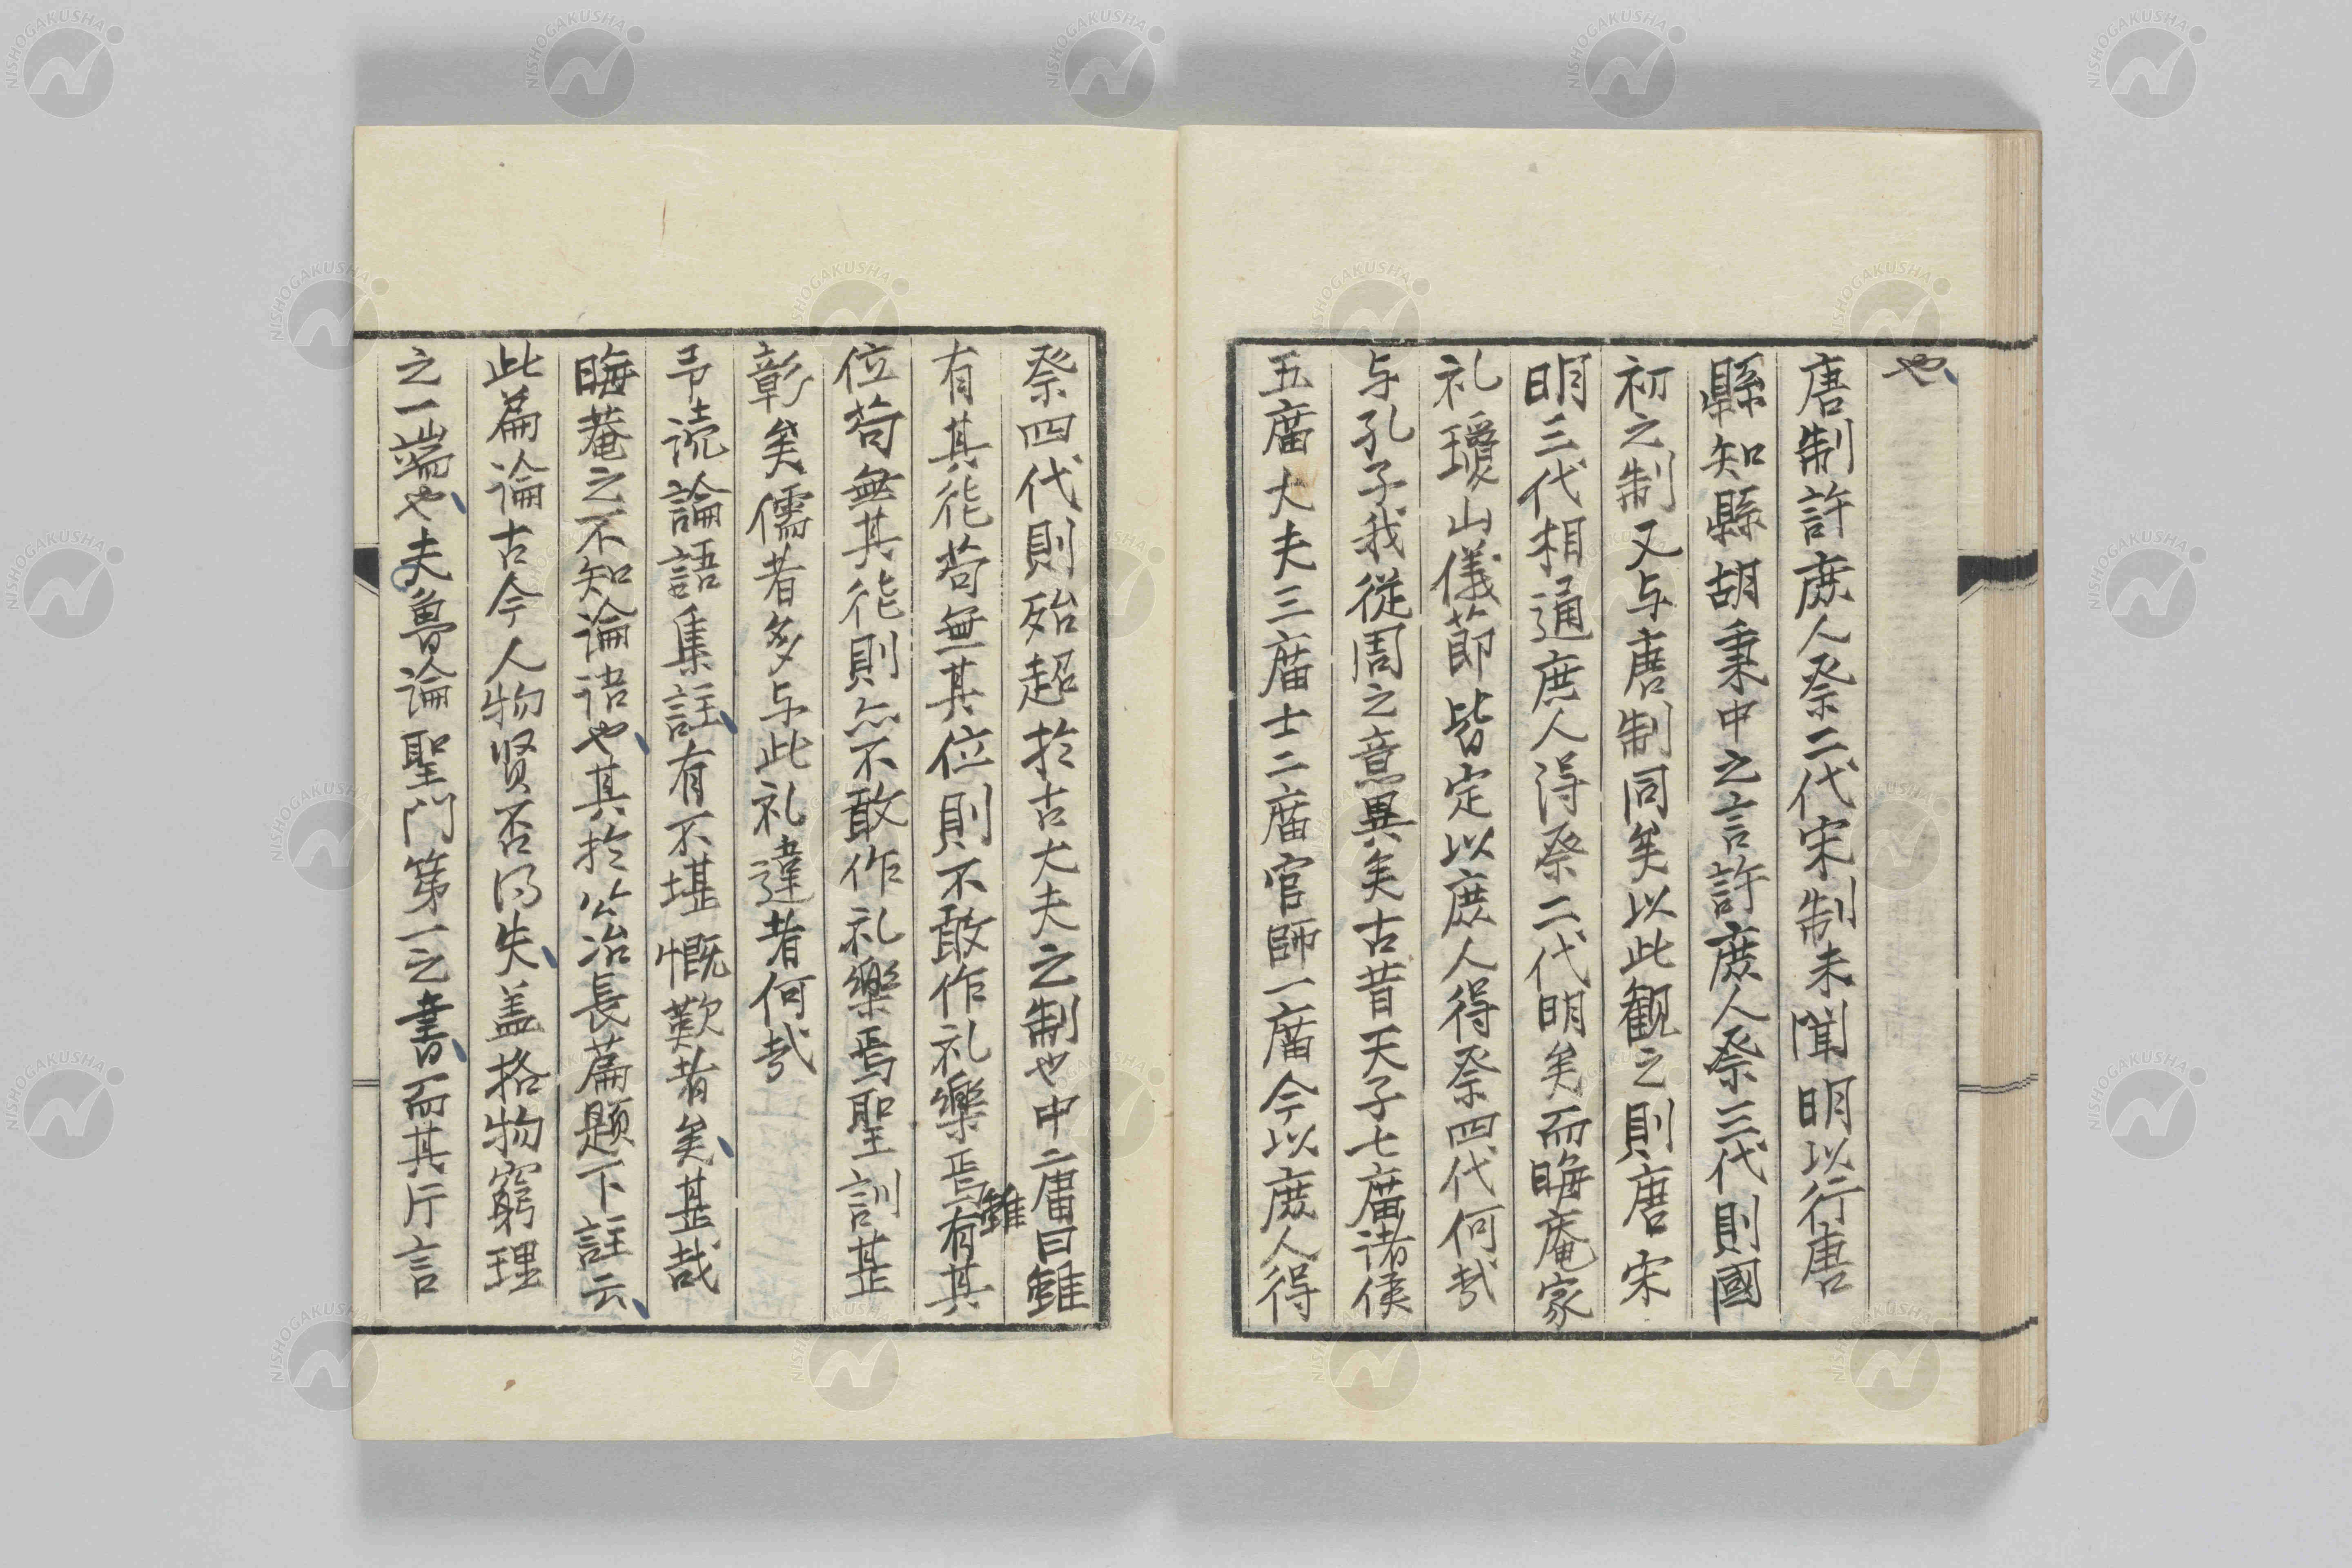 也
唐制許庶人祭二代宋制未聞明以行唐
縣知縣胡秉中之言許庶人祭三代則國
初之制又与唐制同矣以此観之則唐宋
明三代相通庶人得祭二代明矣而晦庵家
礼瓊山儀節皆定以庶人得祭四代何哉
与孔子我從周之意異矣古昔天子七廟諸侯
五廟大夫三廟士二廟官師一廟今以庶人得
祭四代則殆超於古大夫之制也中庸曰雖
有其位苟無其位則不敢作礼樂焉雖有其
位苟無其徳則亦不敢作礼樂焉聖訓甚
彰矣儒者多与此礼違者何哉
予読論語集註有不堪慨歎者矣甚哉
晦菴之不知論語也其於公冶長篇題下註云
此篇論古今人物賢否得失盖格物窮理
之一端也夫魯論聖門第一之書而其所言
NISHOGAKUSHA